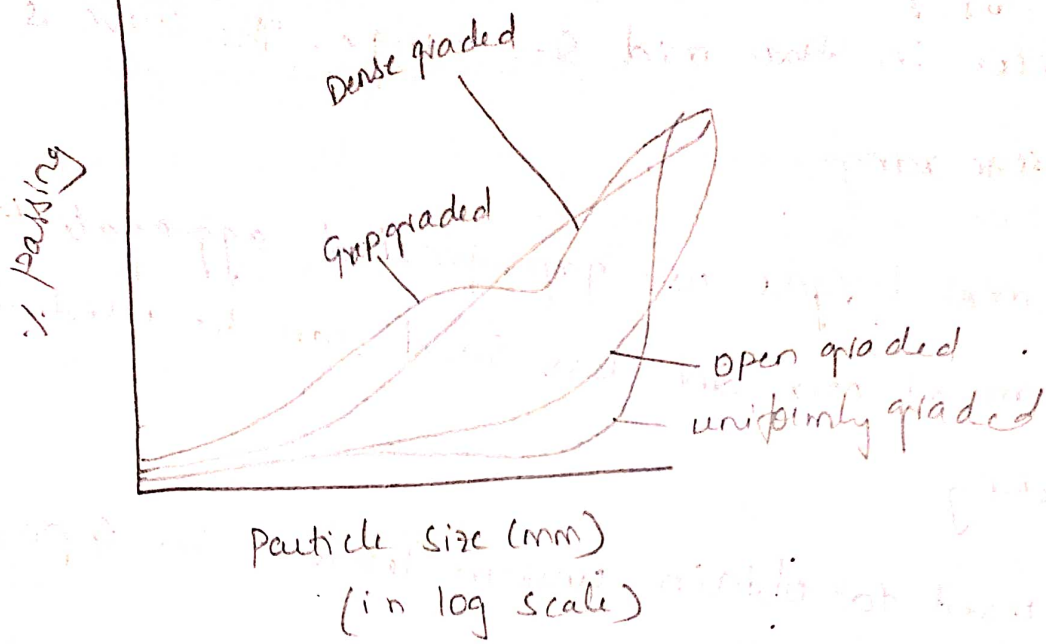 Dense graded
Gap graded
% passing
open graded
uniformly graded
Particle size (mm)
(in log scale)